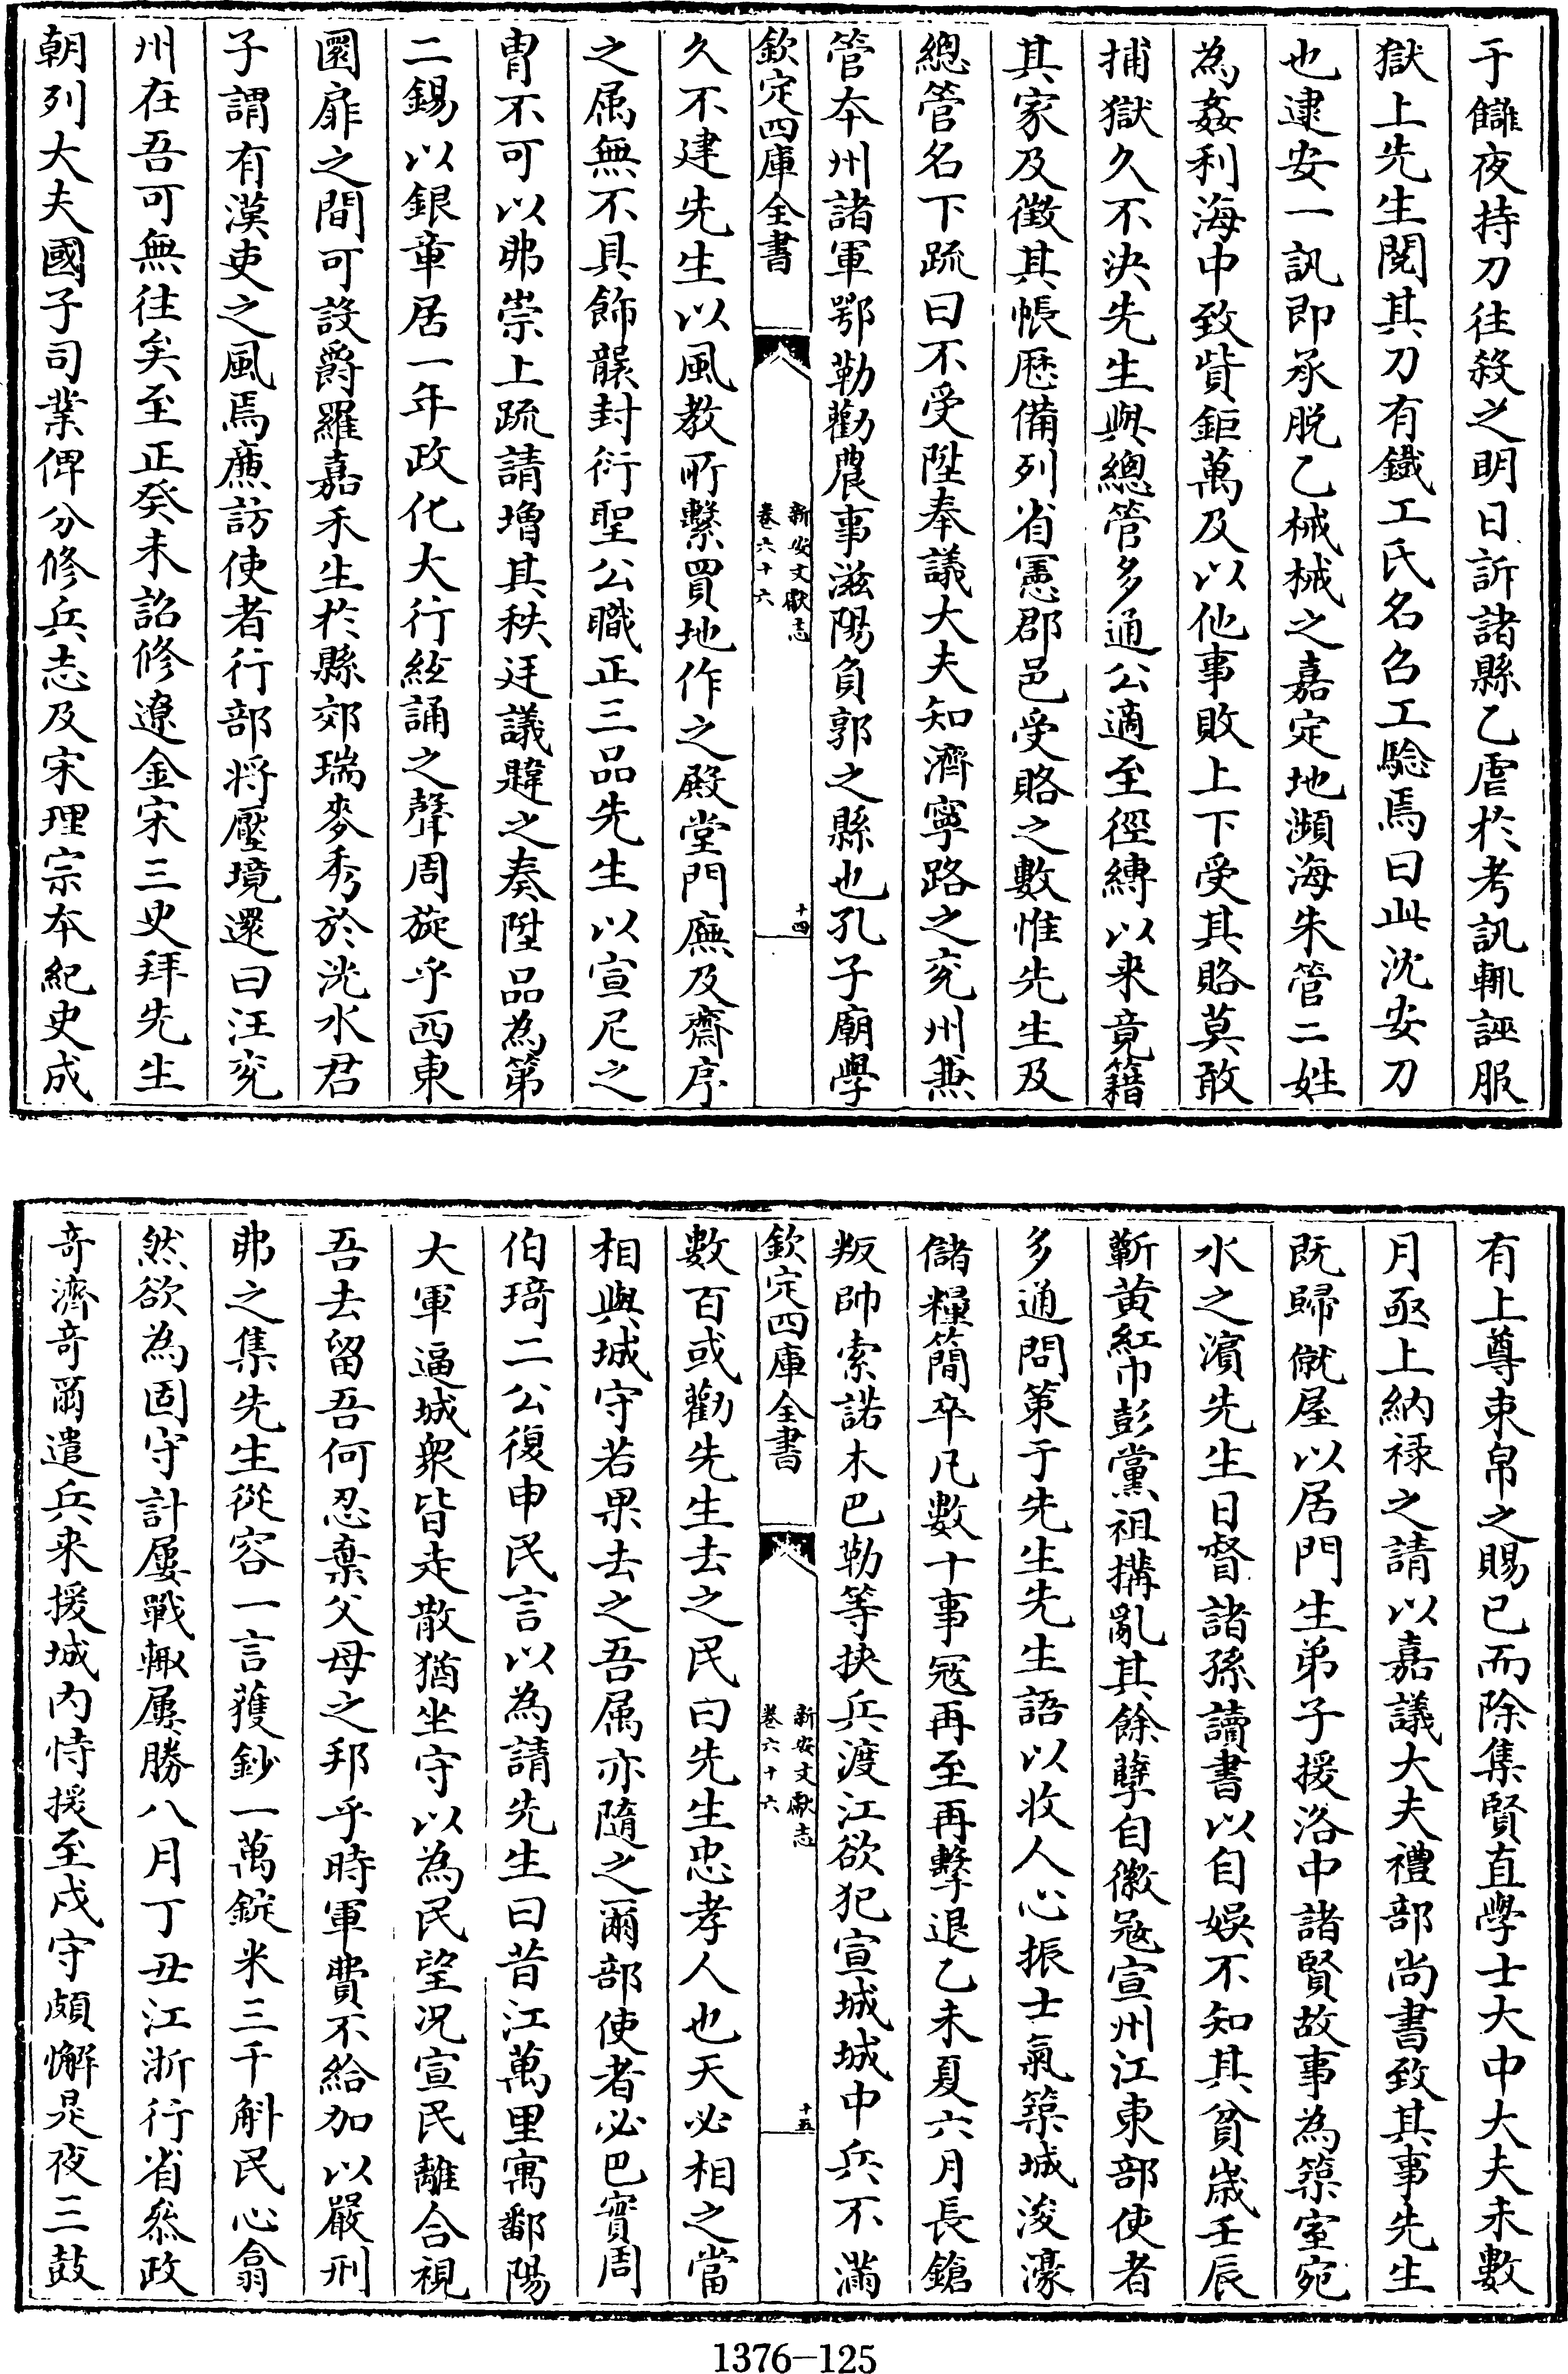 于讎夜持刀往殺之明日訢諸縣乙虐於考訊輒誣服
獄上先生閱其刀有鐵工氏名召工驗焉曰此沈安刀
也逮安一訊即承脱乙械械之嘉定地瀕海朱管二姓
為姦利海中致貲鉅萬及以他事敗上下受其賂莫敢
捕獄久不決先生與總管多通公適至徑縛以來竟籍
其家及徵其帳厯備列省憲郡邑受賂之數惟先生及
總管名下疏曰不受陞奉議大夫知濟寧路之兖州兼
管本州諸軍鄂勒勸農事滋陽負郭之縣也孔子廟學
欽定四庫全書
新安文獻志
卷六十六
十四
久不建先生以風教所繫買地作之殿堂門廡及齋序
之属無不具飾襲封衍聖公職正三品先生以宣尼之
胄不可以弗崇上疏請增其秩廷議韙之奏陞品為第
二錫以銀章居一年政化大行絃誦之聲周旋乎西東
圜扉之間可設爵羅嘉禾生於縣郊瑞麥秀於洸水君
子謂有漢吏之風焉亷訪使者行部将壓境還曰汪兖
州在吾可無往矣至正癸未詔修遼金宋三史拜先生
朝列大夫國子司業俾分修兵志及宋理宗本紀史成
有上尊束帛之賜已而除集賢直學士大中大夫未數
月亟上納禄之請以嘉議大夫禮部尚書致其事先生
既歸僦屋以居門生弟子援洛中諸賢故事為築室宛
水之濱先生日督諸孫讀書以自娛不知其貧歲壬辰
蘄黄紅巾彭黨祖搆亂其餘孽自徽寇宣州江東部使者
多通問策于先生先生語以收人心振士氣築城浚濠
儲糧簡卒凡數十事冦再至再擊退乙未夏六月長鎗
叛帥索諾木巴勒等挟兵渡江欲犯宣城城中兵不滿
欽定四庫全書
新安文獻志
卷六十六
十五
數百或勸先生去之民曰先生忠孝人也天必相之當
相與城守若果去之吾属亦隨之爾部使者必巴實周
伯琦二公復申民言以為請先生曰昔江萬里寓鄱陽
大軍逼城衆皆走散猶坐守以為民望况宣民離合視
吾去留吾何忍棄父母之邦乎時軍費不給加以嚴刑
弗之集先生從容一言獲鈔一萬錠米三千斛民心翕
然欲為固守計屢戰輙屢勝八月丁丑江浙行省叅政
奇濟奇爾遣兵来援城内恃援至戍守頗懈是夜三鼓
1376-125